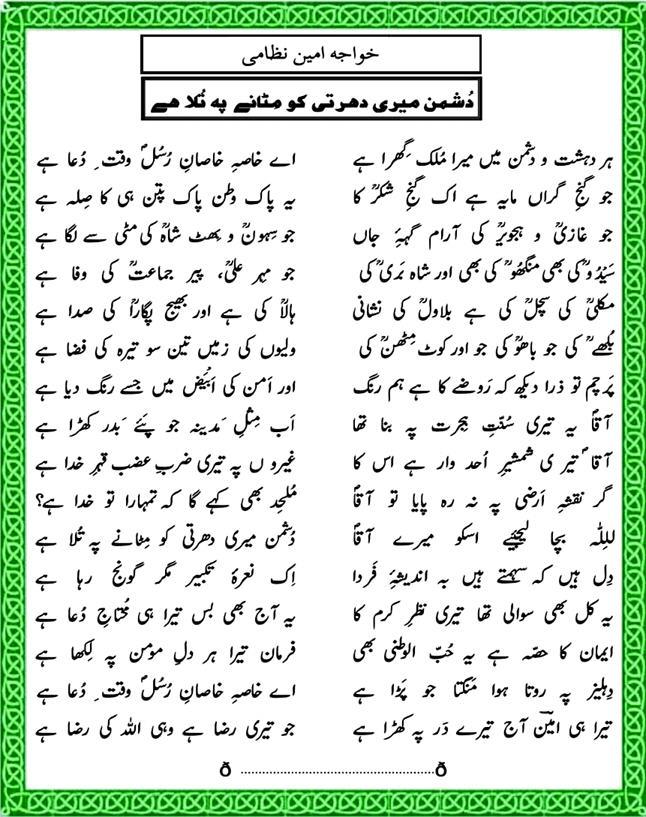 خواجہ امین نظامی
دُشمن میری دھرتی کو مِٹانے پہ تُلا ھے
ہر دہشت و دشمن میں میرا مُلک گِھرا ہے اے خاصہِ خاصانِ رُسُلؐ وقتِ دُعا ہے
جو گنجِ گراں مایہ ہے اک گنجِ شکرؒ کا یہ پاک وطن پاک پتن ہی کا صِلہ ہے
جو غازیؒ و ہجویرؒ کی آرام گہہِ جاں جو سِہونؒ و بِھٹ شاہؒ کی مٹی سے لگا ہے
سَیدُوؒ کی بھی منگھوؒ کی بھی اور شاہ بَریؒ کی جو مہر علیؒ، پیر جماعتؒ کی وفا ہے
مکلیؒ کی سچلؒ کی ہے بلاولؒ کی نشانی ہالاؒ کی ہے اور بھیج پگاراؒ کی صدا ہے
بُلھےؒ کی جو باھُوؒ کی جو اور کوٹ مِٹھنؒ کی ولیوں کی زمیں تین سو تیرہ کی فضا ہے
پَرچم تو ذرا دیکھ کہ رَوضے کا ہے ہم رنگ اور اَمن کی اَبیَض میں جسے رنگ دیا ہے
آقاؐ یہ تیری سُنّتِ ہجرت پہ بنا تھا اَب مِثلِ مَدینہ جو پَئے بَدر کھڑا ہے
آقاؐ تیری شمشیرِ اُحد وار ہے اس کا غیروں پہ تیری ضربِ عضب قہرِ خدا ہے
گر نقشہِ اَرضی پہ نہ رہ پایا تو آقاؐ مُلحِد بھی کہے گا کہ تمہارا تو خدا ہے؟
للِلّٰہ بچا لیجیٔے اسکو میرے آقاؐ دُشمن میری دھرتی کو مِٹانے پہ تُلا ہے
دِل ہیں کہ سہمتے ہیں بہ اندیشۂِ فَردا اِک نعرۂ تکبیر مگر گونج رہا ہے
یہ کل بھی سوالی تھا تیری نظرِ کرم کا یہ آج بھی بس تیرا ہی مُحتاجِ دُعا ہے
ایمان کا حصّہ ہے یہ حُبّ الوطنی بھی فرمان تیرا ہر دلِ مؤمن پہ لِکھا ہے
دِہلیز پہ روتا ہوا مَنگتا جو پَڑا ہے اے خاصہِ خاصانِ رُسُلؐ وقتِ دُعا ہے
تیرا ہی امینؔ آج تیرے دَر پہ کھڑا ہے جو تیری رضا ہے وہی اللہ کی رضا ہے